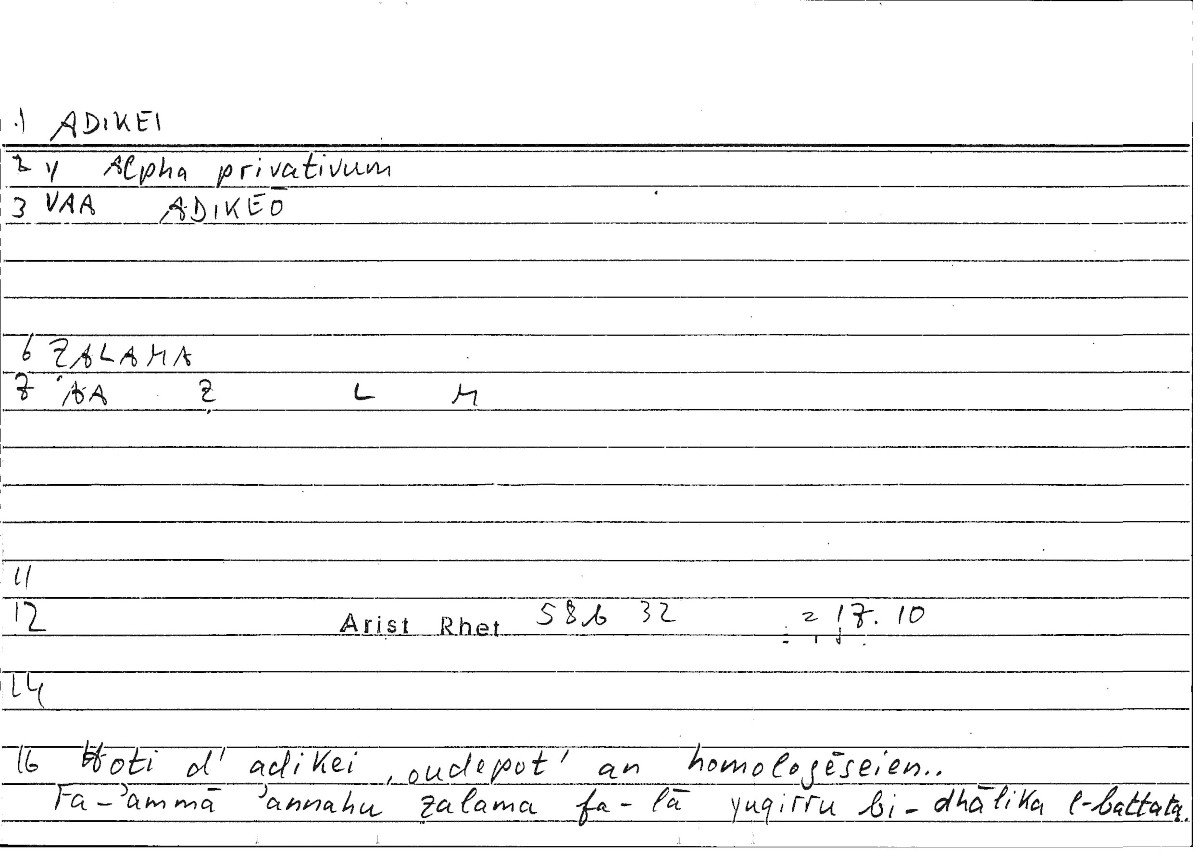 1 ADIKEI
2 y Alpha privativum
3 VAA ADIKEŌ
6 ẒALAMA
7 'AA Ẓ L M
11
12 Arist Rhet 58b 32 = 17.10
14
16 Hoti d' adikei, oudepot' an homologēseien..
Fa-'ammā 'annahu ẓalama fa-lā yuqirru bi-dhālika l-battata.